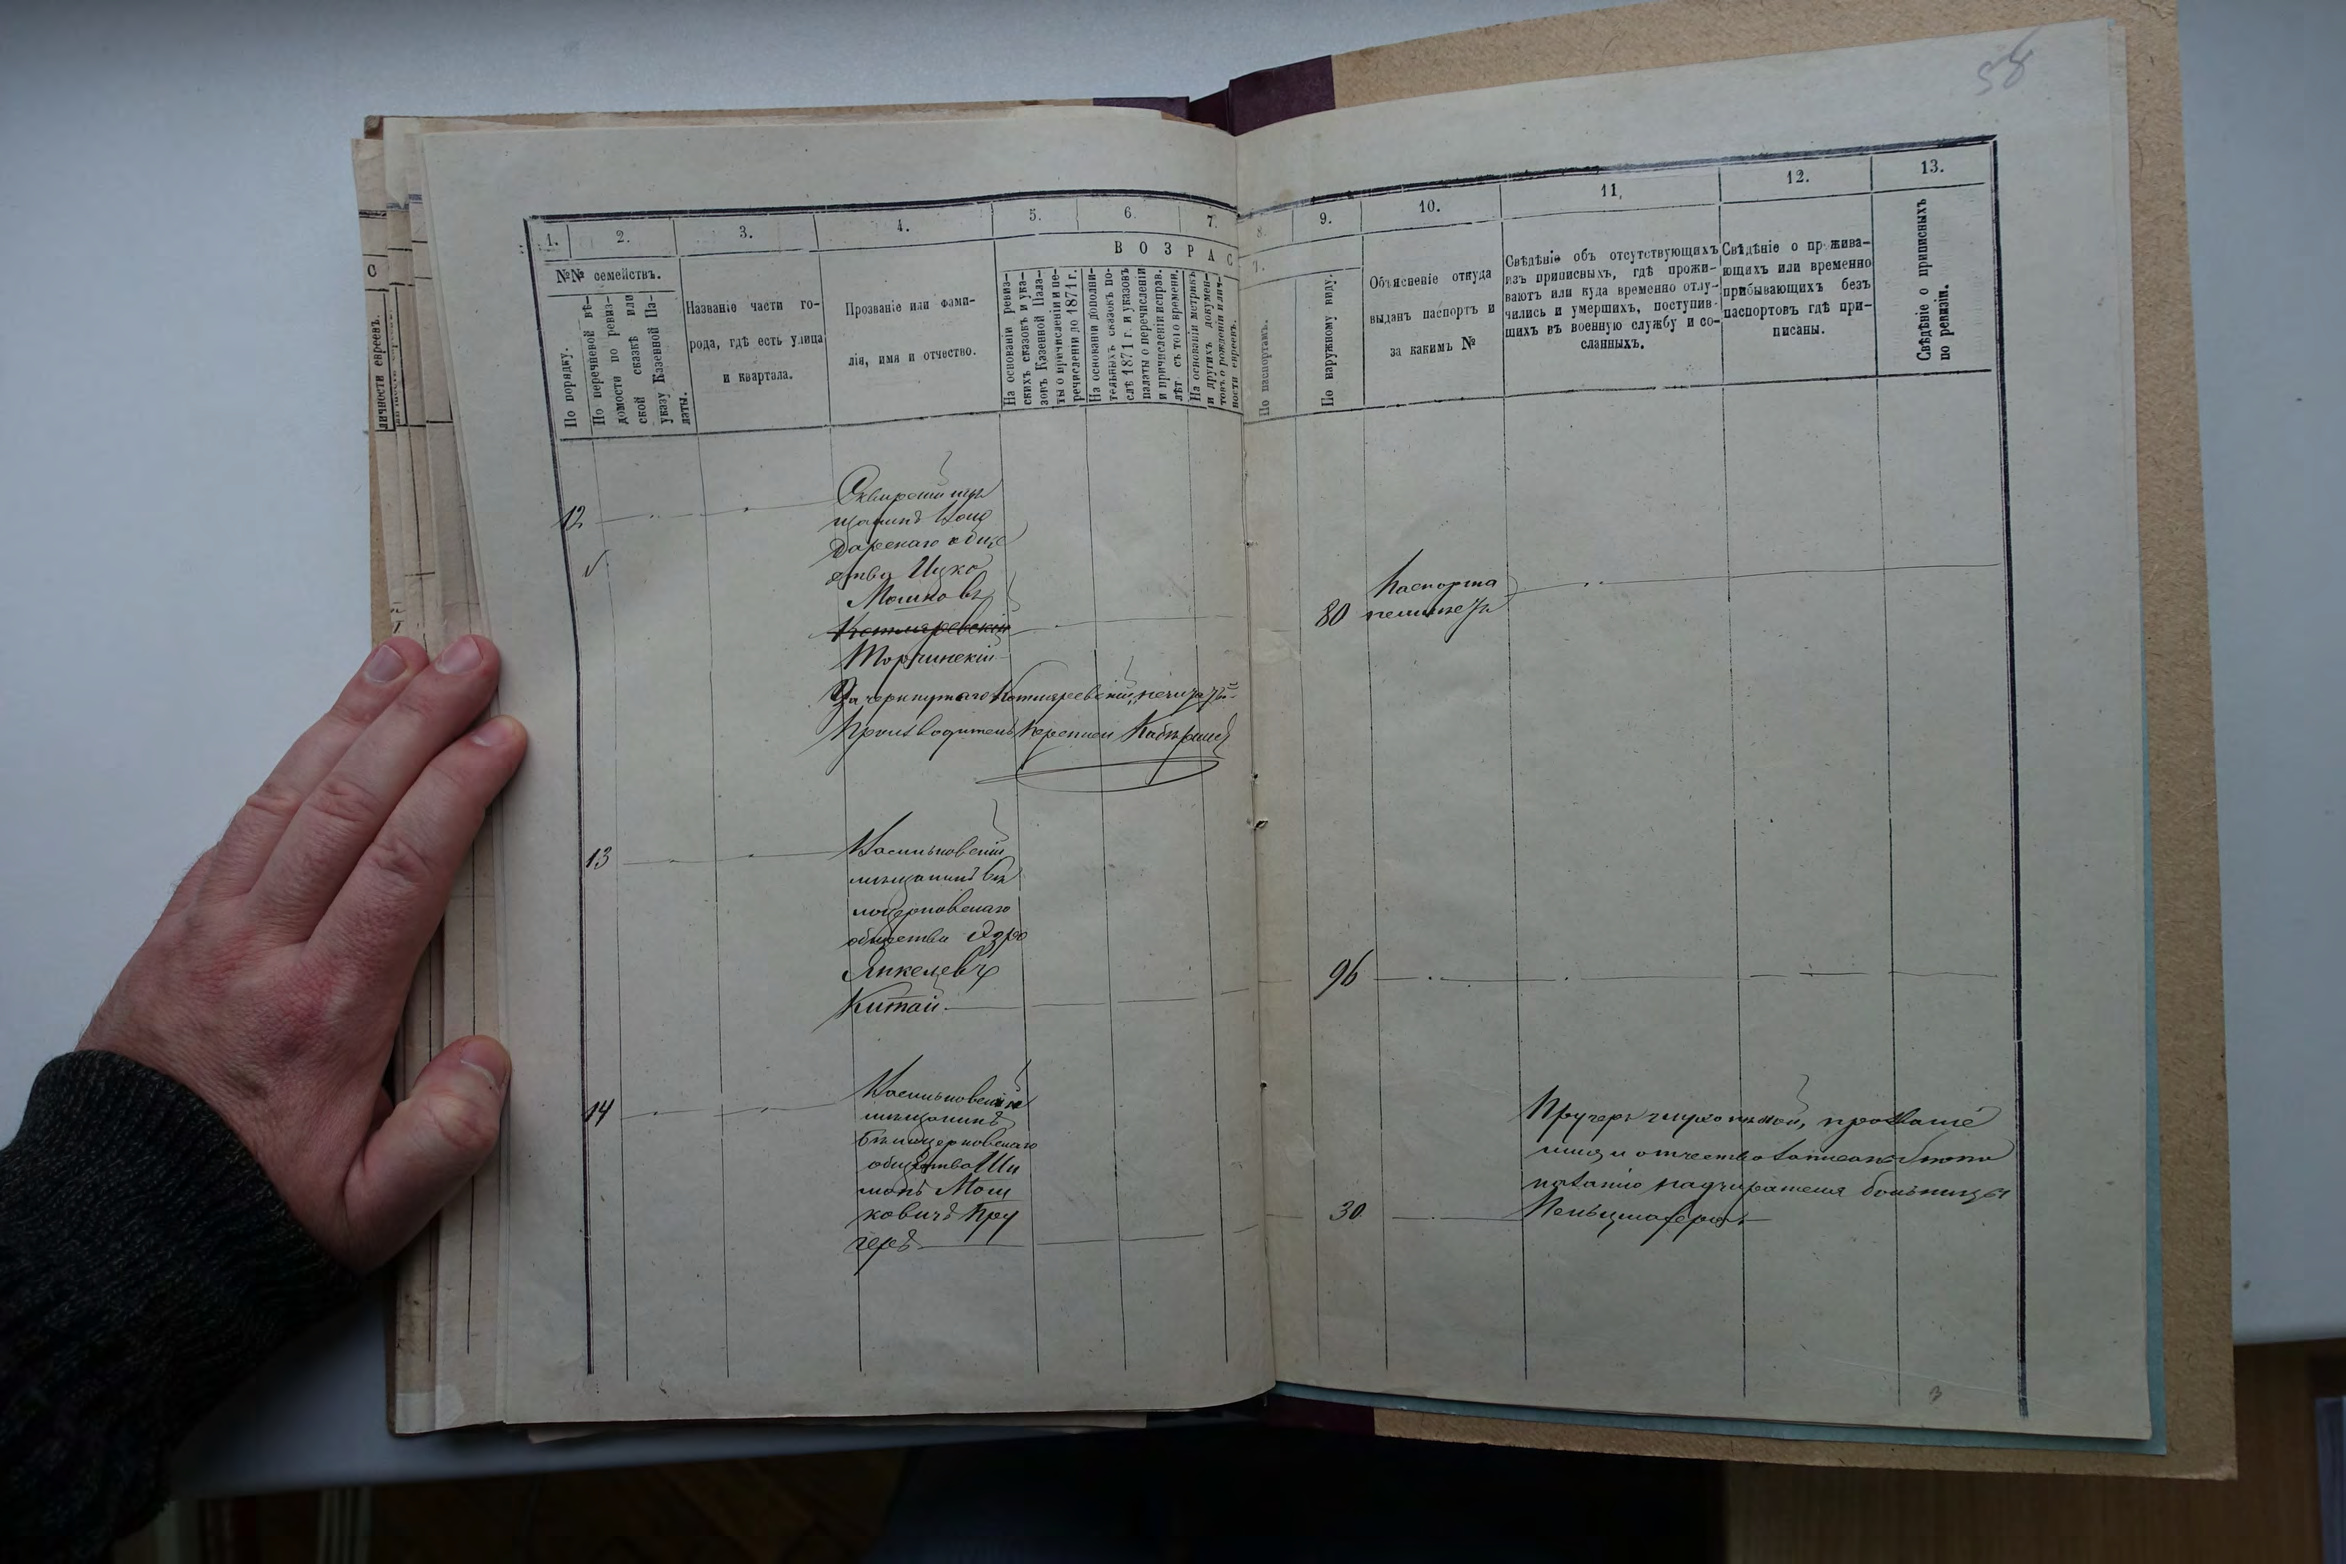 58
1.
2.
3.
4.
5.
6.
7.
8.
9.
10.
11.
12.
13.
С
личности евреевъ.
№№ семействъ.
По порядку.
По перечневой вѣ-
домости по ревиз-
ской сказкѣ или
указу Казенной Па-
латы.
Названіе части го-
рода, гдѣ есть улица
и квартала.
Прозваніе или фами-
лія, имя и отчество.
ВОЗРАС
На основаніи ревиз-
скихъ сказокъ и ука-
зовъ Казенной Пала-
ты о причисленіи и пе-
речисленіи до 1871 г.
На основаніи дополни-
тельныхъ сказокъ по-
слѣ 1871 г. и указовъ
палаты о перечисленіи
и причисленіи исправ.
лѣт съ того времени.
На основаніи метрикъ
и другихъ докумен-
товъ о рожденіи и лич-
ности евреевъ.
Т.
По паспортамъ.
По наружному виду.
Объясненіе откуда
выданъ паспортъ и
за какимъ №
Свѣдѣніе объ отсутствующихъ
изъ приписныхъ, гдѣ прожи-
ваютъ или куда временно отлу-
чились и умершихъ, поступив-
шихъ въ военную службу и со-
сланныхъ.
Свѣдѣніе о прожива-
ющихъ или временно
прибывающихъ безъ
паспортовъ гдѣ при-
писаны.
Свѣдѣніе о приписныхъ
по ревизіи.
12
Сквирскій мѣ
щанинъ
общε
ства Ицко
Мошковъ
Котляревскій
Торчинскій
Зачеркнутаго „Котляревскій„ не читать
Производитель Переписи
80
Паспорта
неимѣетъ
13
Васильковскій
мѣщанинъ Бѣ
лоцерковскаго
общества
Янкелевъ
Китай
96
14
Васильковскій
мѣщанинъ
Бѣлоцерковскаго
общества Ши
монъ Мош
ковичъ Пру
геръ
30
Пругеръ глухонѣмой, прозваніе
имя и отчество записаны по по
казанію надзирателя больницы